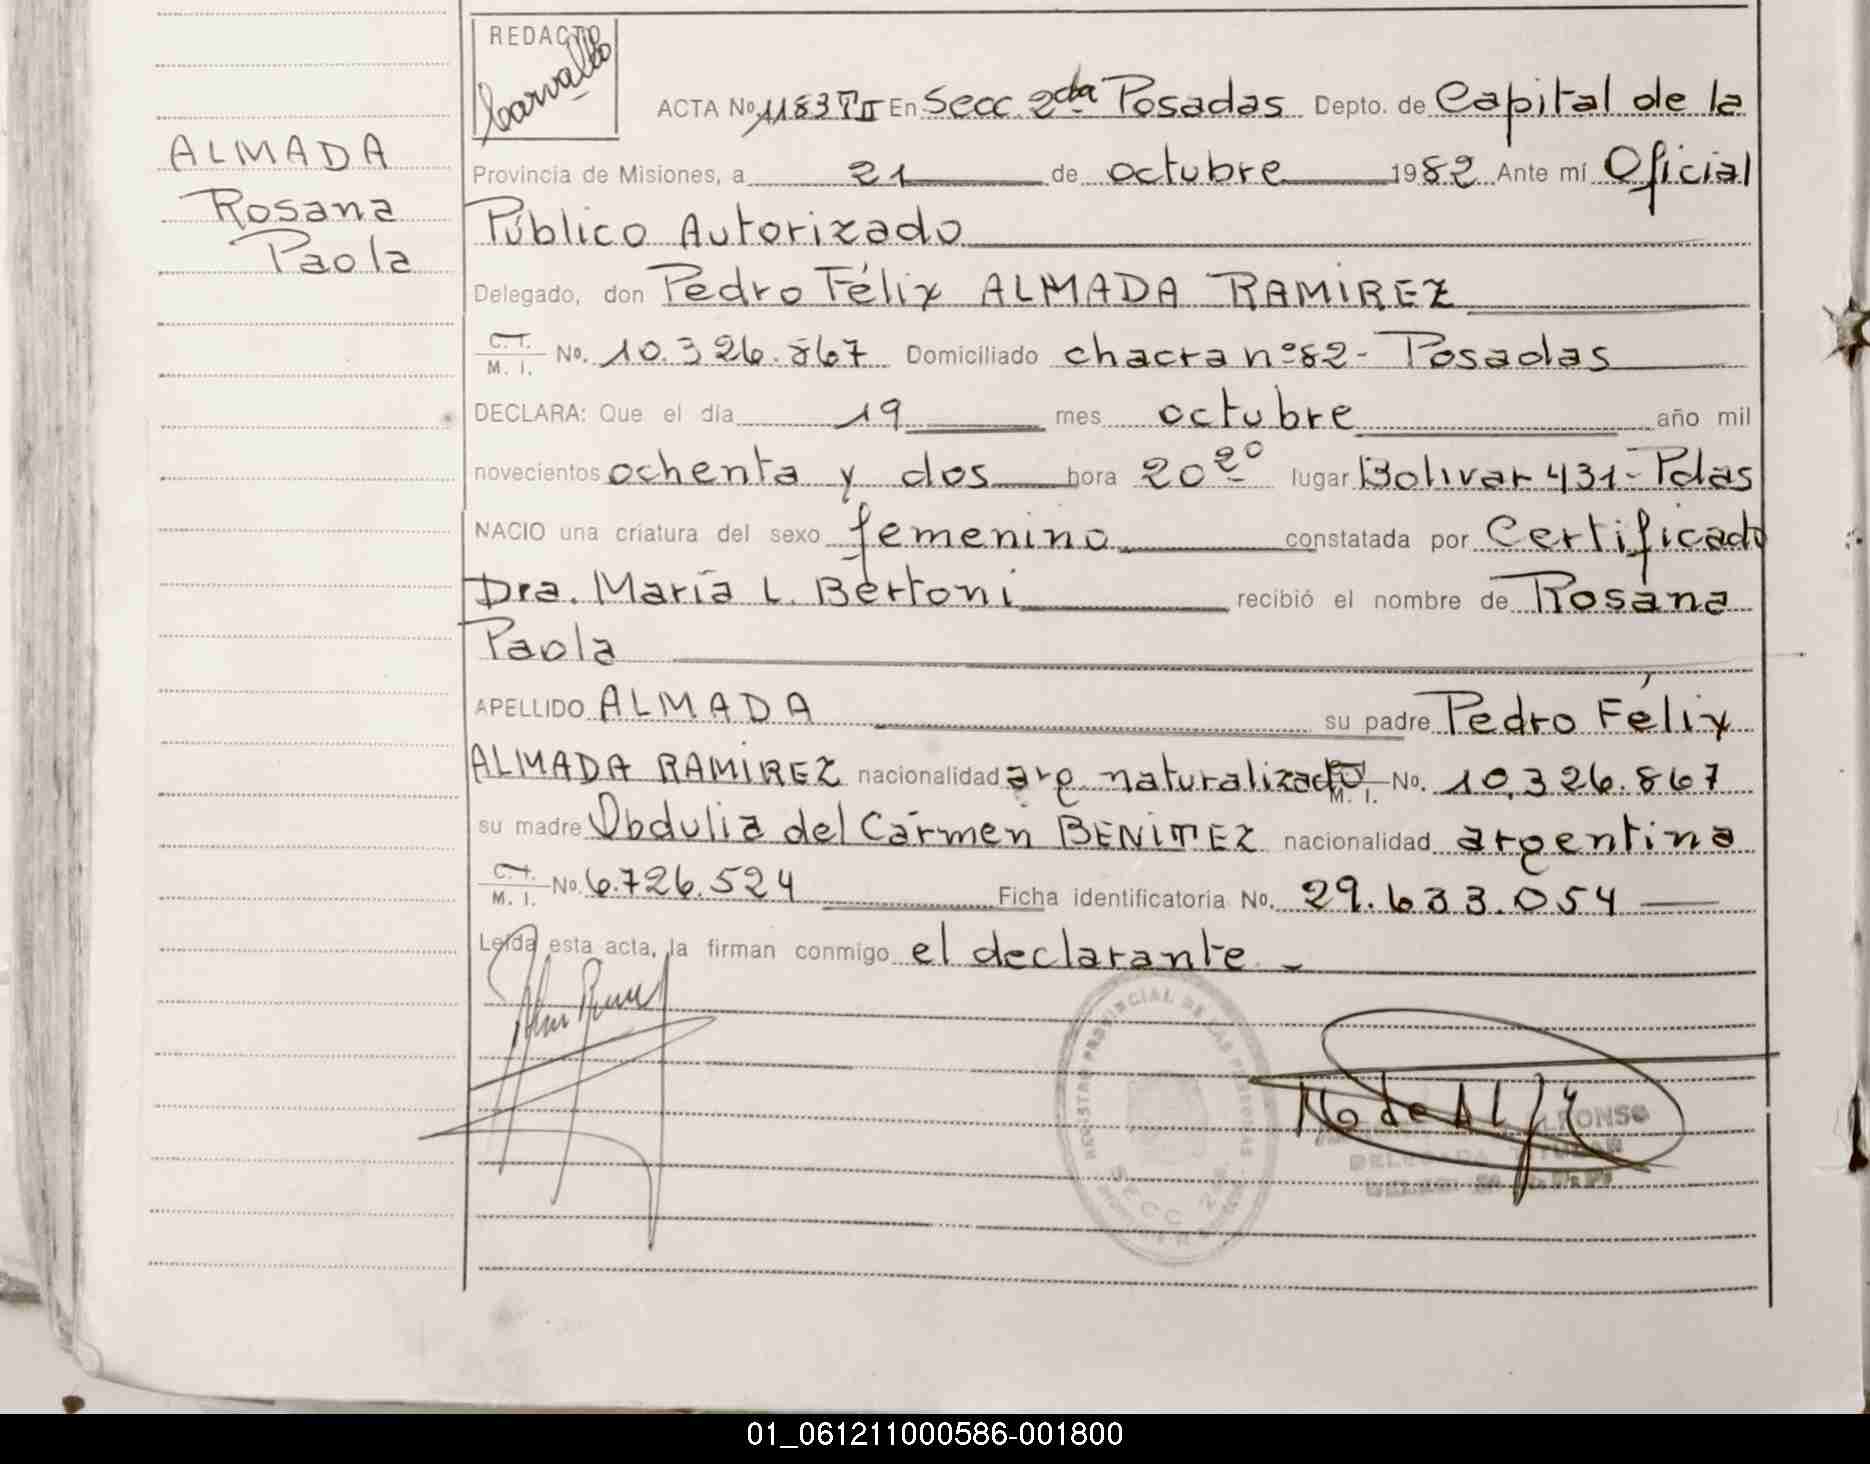 REDACTO
Carvallo
ALMADA
Rosana
Paola
ACTA No. 1183 TII En Secc. 2da Posadas Depto. de Capital de la
Provincia de Misiones, a 21 de octubre 1982 Ante mí Oficial
Público Autorizado
Delegado, don Pedro Félix ALMADA RAMIREZ
C. I.
M. I. No. 10.326.867 Domiciliado chacra nº 82- Posadas
DECLARA: Que el día 19 mes octubre año mil
novecientos ochenta y dos hora 20 20 lugar Bolivar 431- Pdas
NACIO una criatura del sexo femenino constatada por Certificado
Dra. María L. Bertoni recibió el nombre de Rosana
Paola
APELLIDO ALMADA su padre Pedro Félix
ALMADA RAMIREZ nacionalidad arg. naturalizado M. I. No. 10.326.867
su madre Obdulia del Carmen BENITEZ nacionalidad argentina
C. I.
M. I. No. 6.726.524 Ficha identificatoria No. 29.633.054
Leída esta acta, la firman conmigo el declarante.-
REGISTRO PROVINCIAL DE LAS PERSONAS
SECC. 2
01_061211000586-001800